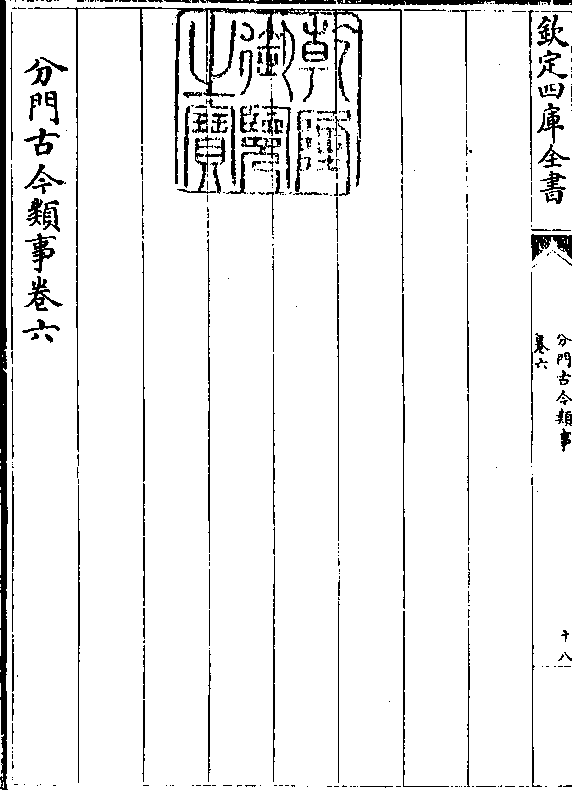 欽定四庫全書
分門古今類事
卷六
十八
乾隆
御覽
之寶
分門古今類事卷六